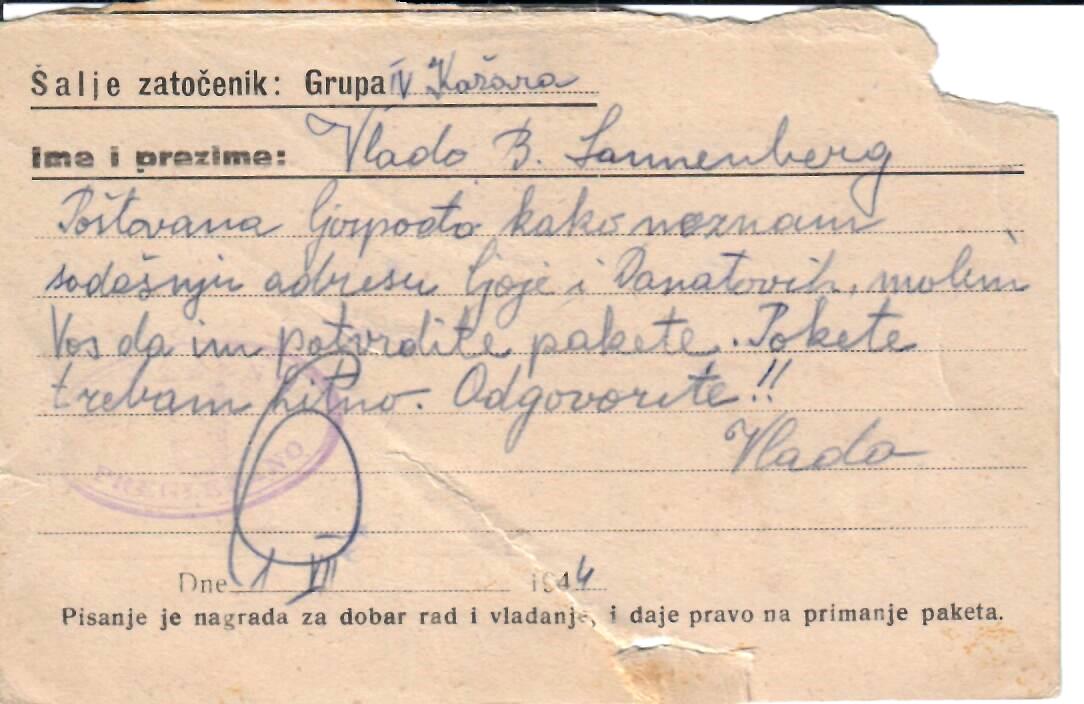 Šalje zatočenik: Grupa IV Kožara
ime i prezime: Vlado B. Sonnenberg
Poštovana Gospođo kako neznam
sadašnju adresu Goje i Danatovih, molim
Vas da im potvrdite pakete. Pakete
trebam hitno. Odgovorite!!
Vlado
PREGLEDANO
Dne 1 III 1944
Pisanje je nagrada za dobar rad i vladanje, i daje pravo na primanje paketa.